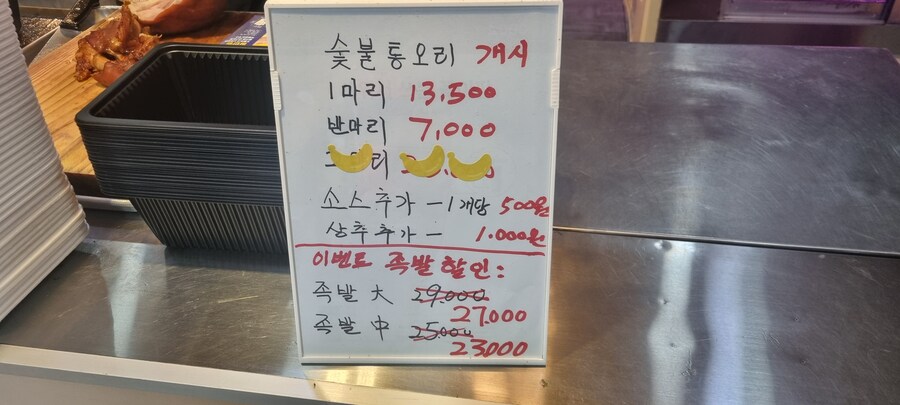 숯불통오리 개시
1마리 13,500
반마리 7,000
리
소스추가 - 1개당 500원
상추추가 - 1.000원
이벤트 족발 할인:
족발 大 29.000
27.000
족발 中 25.000
23.000